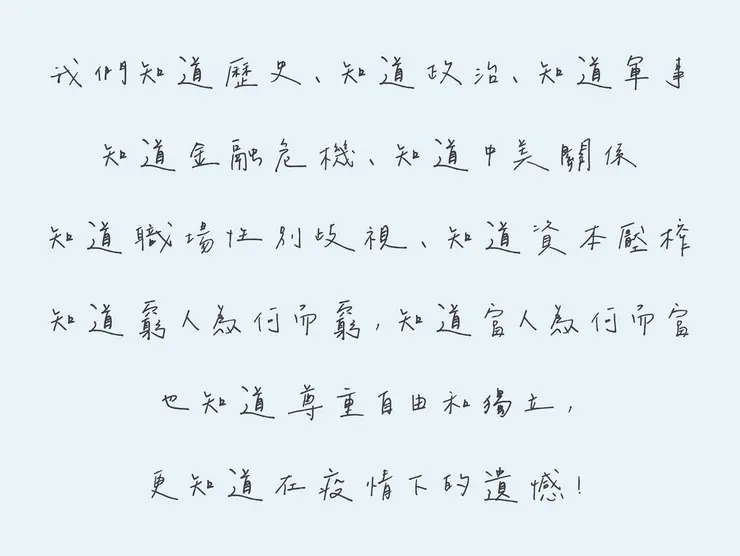 我們知道歷史、知道政治、知道軍事
知道金融危機、知道中美關係
知道職場性別歧視、知道資本壓榨
知道窮人為何而窮,知道富人為何而富
也知道尊重自由和獨立,
更知道在疫情下的遺憾!